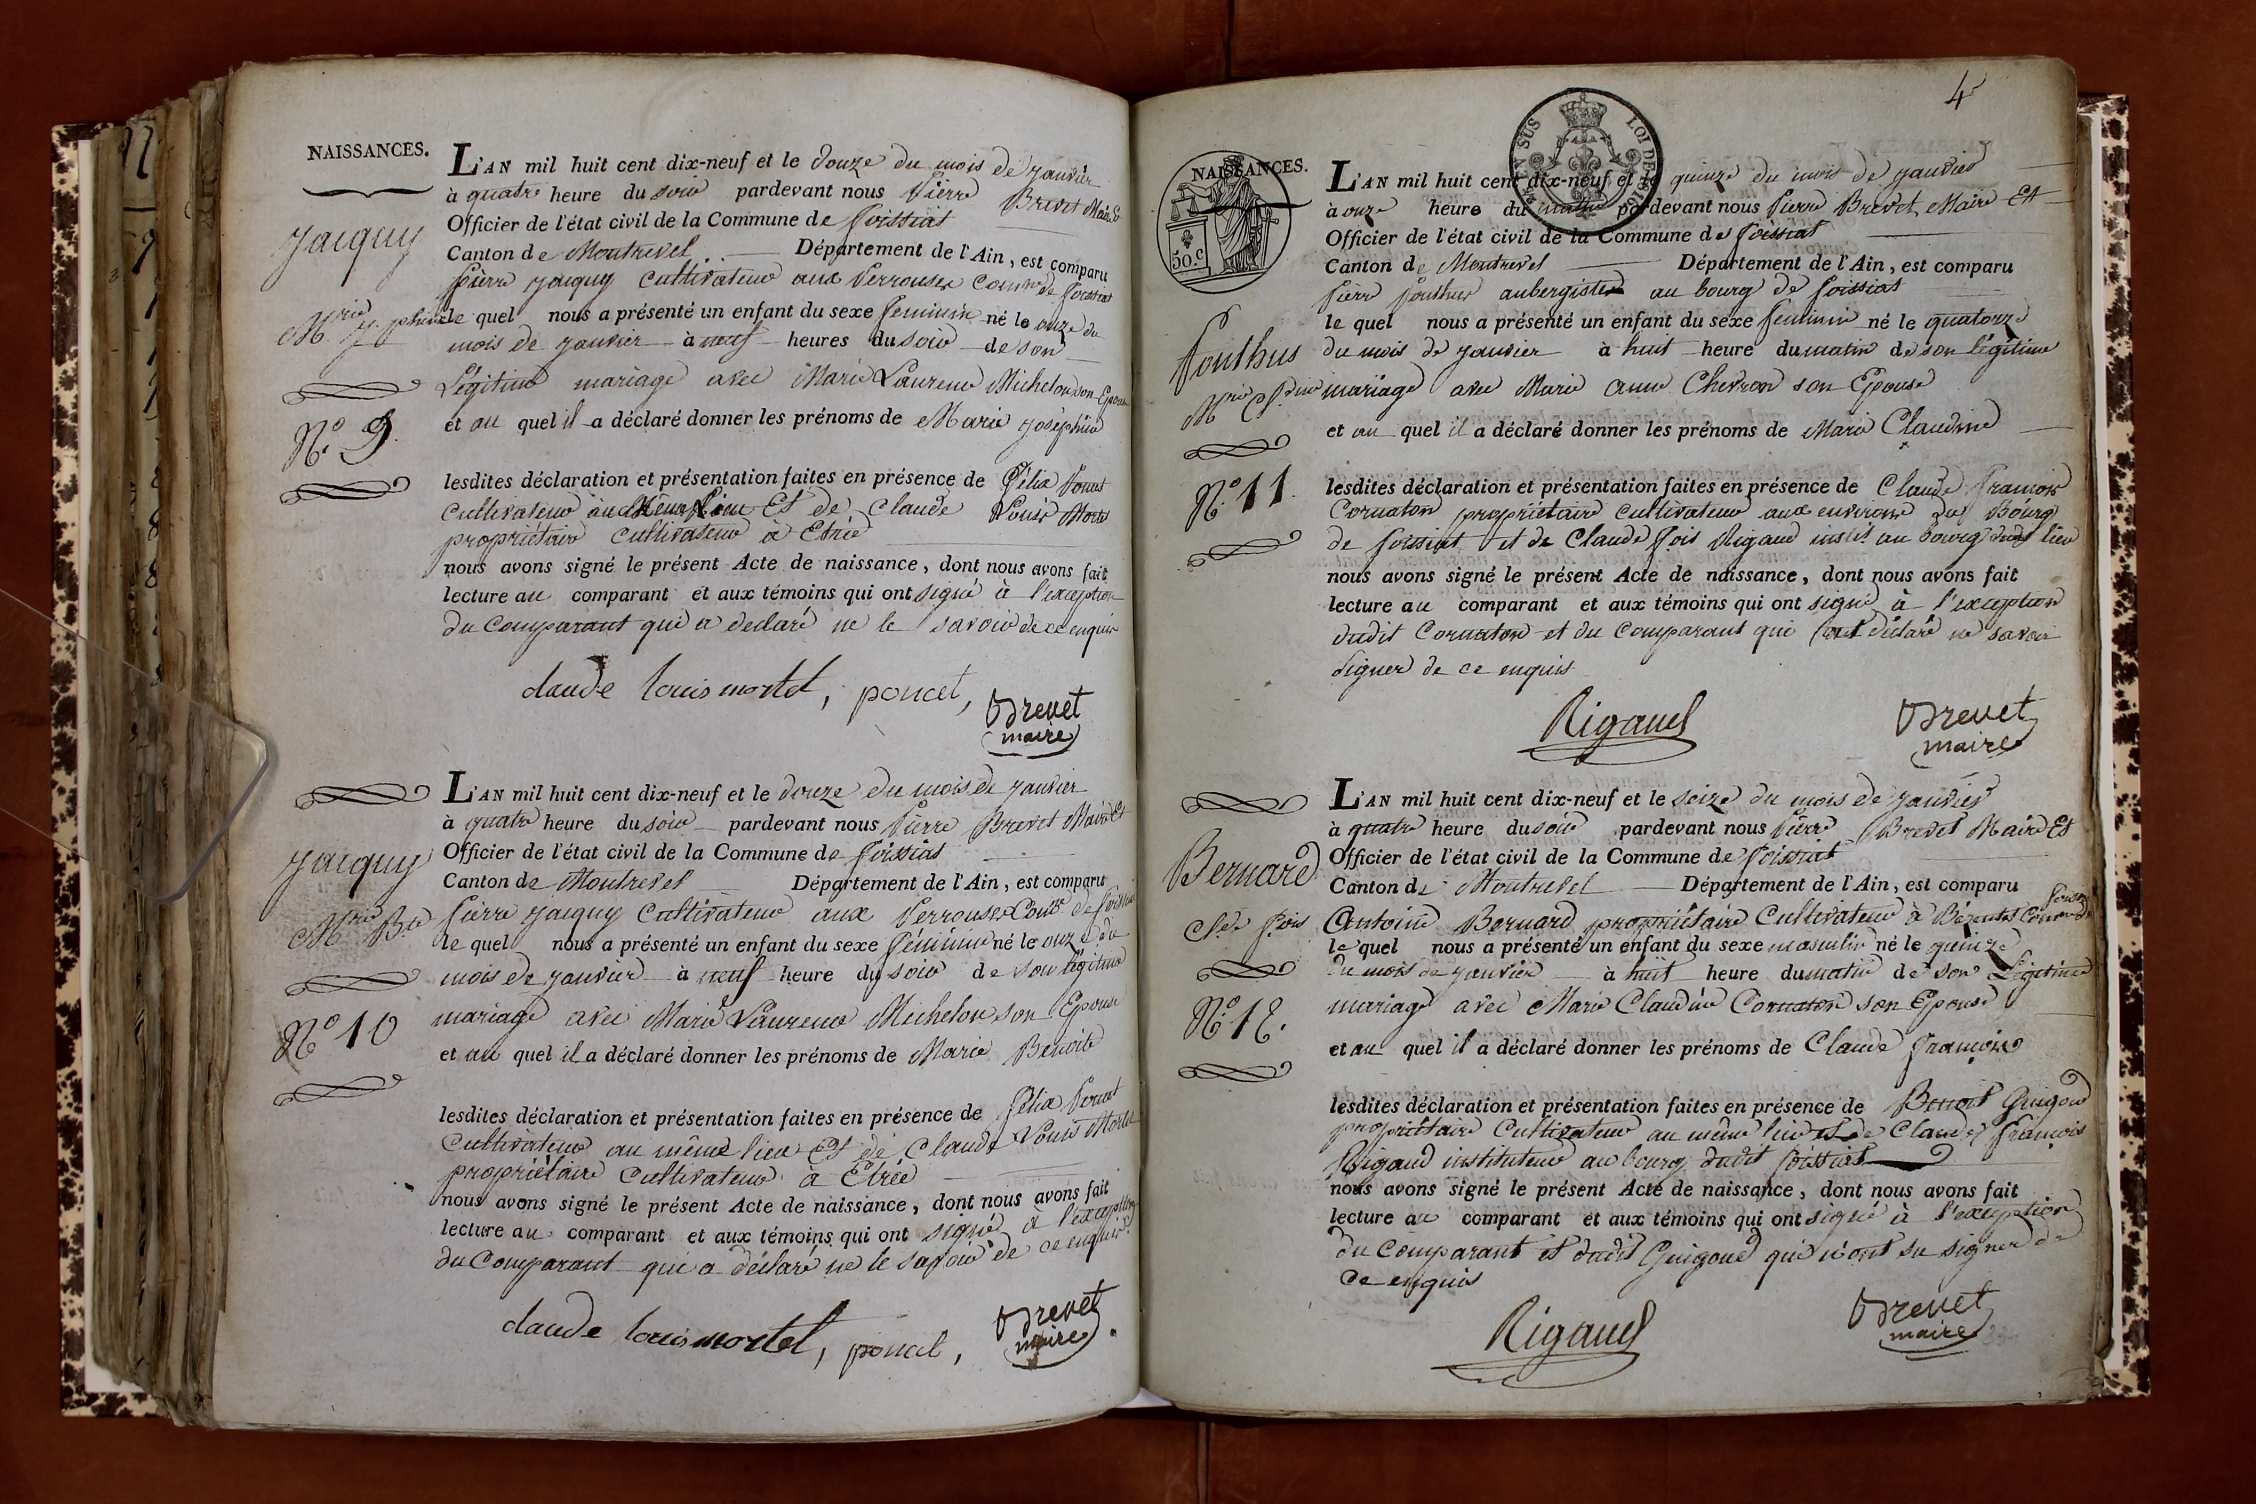 NAISSANCES.
L'AN mil huit cent dix-neuf et le douze du mois de janvier
à quatre heure du soir pardevant nous Pierre Brevet Maire Et
Officier de l'état civil de la Commune de Foissiat
Canton de Montrevel Département de l'Ain, est comparu
Pierre Jacquy Cultivateur aux Verrouses Comne de Foissiat
le quel nous a présenté un enfant du sexe féminin né le onze du
mois de janvier à neuf heures du soir de son
Légitime mariage avec Marie Laurence Michelon son Epouse
et au quel il a déclaré donner les prénoms de Marie joséphine
lesdites déclaration et présentation faites en présence de Félix Poncet
Cultivateur au Même Lieu Et de Claude Louis Mortel
propriétaire Cultivateur à Etrée
nous avons signé le présent Acte de naissance, dont nous avons fait
lecture au comparant et aux témoins qui ont signé à l'exception
du Comparant qui a déclaré ne le savoir de ce enquis
claude louis mortel, poncet, Brevet
maire
Jacquy
Mrie Jphine
N.o 9.
L'AN mil huit cent dix-neuf et le douze du mois de janvier
à quatre heure du soir pardevant nous Pierre Brevet Maire Et
Officier de l'état civil de la Commune de Foissiat
Canton de Montrevel Département de l'Ain, est comparu
Pierre Jacquy Cultivateur aux Verrouses Comne de Foissiat
le quel nous a présenté un enfant du sexe féminin né le onze du
mois de janvier à neuf heure du soir de son légitime
mariage avec Marie Laurence Michelon son Epouse
et au quel il a déclaré donner les prénoms de Marie Benoite
lesdites déclaration et présentation faites en présence de Félix Poncet
Cultivateur au même lieu Et de Claude Louis Mortel
propriétaire Cultivateur à Etrée
nous avons signé le présent Acte de naissance, dont nous avons fait
lecture au comparant et aux témoins qui ont signé à l'exception
du Comparant qui a déclaré ne le savoir de ce enquis
claude louis mortel, poncet, Brevet
maire
Jacquy
Mrie Bte
No 10
4
NAISSANCES.
50.c
LOI DE
L'AN mil huit cent dix-neuf et le quinze du mois de janvier
à onze heure du matin pardevant nous Pierre Brevet Maire Et
Officier de l'état civil de la Commune de Foissiat
Canton de Montrevel Département de l'Ain, est comparu
Pierre Fonthus aubergiste au bourg de foissiat
le quel nous a présenté un enfant du sexe féminin né le quatorze
du mois de janvier à huit heure du matin de son légitime
mariage avec Marie anne Chevron son Epouse
et au quel il a déclaré donner les prénoms de Marie Claudine
lesdites déclaration et présentation faites en présence de Claude François
Cornaton propriétaire Cultivateur aux environs du Bourg
de foissiat et de Claude fois Rigaud instit au bourg dudit lieu
nous avons signé le présent Acte de naissance, dont nous avons fait
lecture au comparant et aux témoins qui ont signé à l'exception
dudit Cornaton et du Comparant qui ont déclaré ne savoir
signer de ce enquis
Rigaud Brevet
maire
Fonthus
Mrie Cdine
N.o 11.
L'AN mil huit cent dix-neuf et le seize du mois de janvier
à quatre heure du soir pardevant nous Pierre Brevet Maire Et
Officier de l'état civil de la Commune de Foissiat
Canton de Montrevel Département de l'Ain, est comparu
Antoine Bernard propriétaire Cultivateur à Comne de foissiat
le quel nous a présenté un enfant du sexe masculin né le quinze
du mois de janvier à huit heure du matin de son Légitime
mariage avec Marie Claudine Cornaton son Epouse
et au quel il a déclaré donner les prénoms de Claude françois
lesdites déclaration et présentation faites en présence de Benoit Guigoud
propriétaire Cultivateur au même lieu et de Claude françois
Rigaud instituteur au bourg dudit foissiat
nous avons signé le présent Acte de naissance, dont nous avons fait
lecture au comparant et aux témoins qui ont signé à l'exception
du Comparant et dudit Guigoud qui n'ont su signer de
ce enquis
Rigaud Brevet
maire
Bernard
Cde fois
N.o 12.